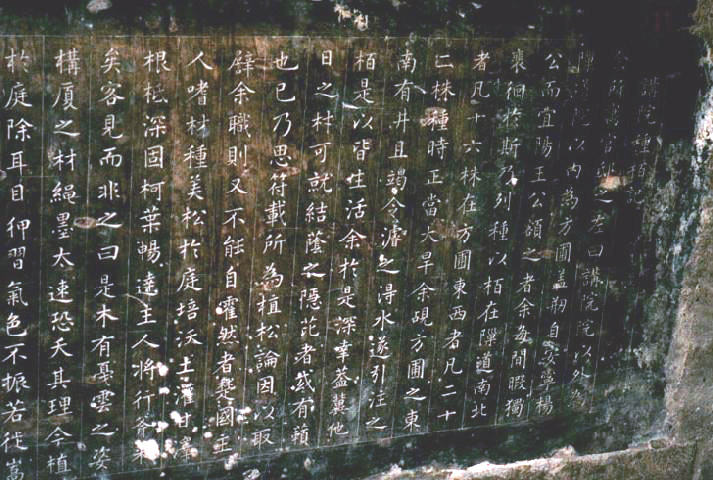 講院種柏記
公所舊官之左曰講院院以外為
道院以內為方圃蓋剏自安寧楊
公而宜陽王公頌之者余每閒暇獨
裵徊於斯乃列種以栢在隟道南北
者凡十六株在方圃東西者凡二十
二株種時正當大旱余硯方圃之東
南有井且竭令濬之得水遂引注之
栢是以皆生活余於是深幸葢冀他
日之材可就結蔭之隱茈者或有藾
也已乃思符載所為植松論因以取
辟余職則又不能自霍然者楚國主
人嗜材種美松於庭培沃土灌甘澤
根柢深固柯葉暢達主人將行
矣客見而非之曰是木有戞雲之姿
構厦之材繩墨太速恐夭其理今植
於庭除耳目狎習氣色不振若徙嵩